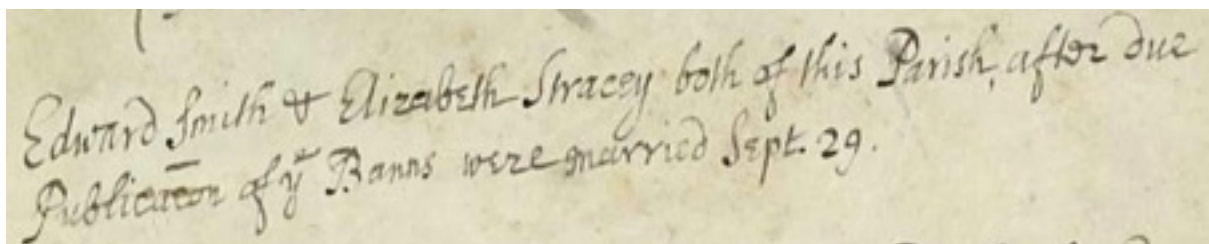 Edward Smith & Elizabeth Stracey both of this Parish, after due
Publicac̄on of yͤ Banns were married Sept. 29.